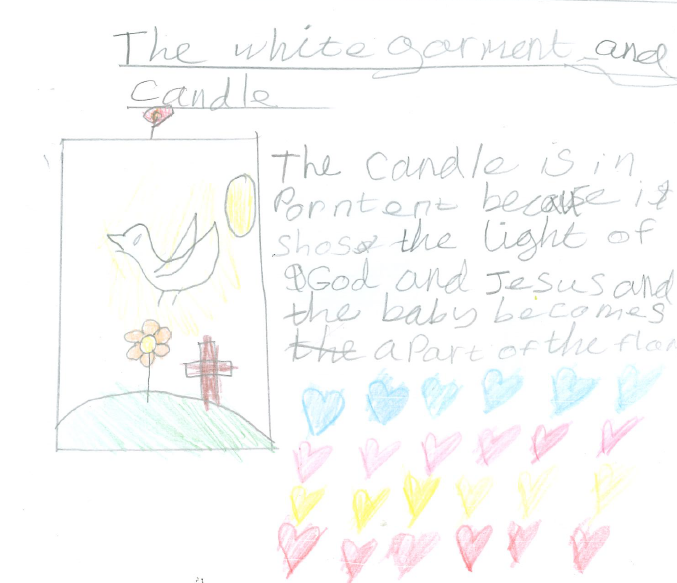 The white garment and
Candle
The candle is in
Porntent because it
shose the light of
God and Jesus and
the baby becomes
the a Part of the